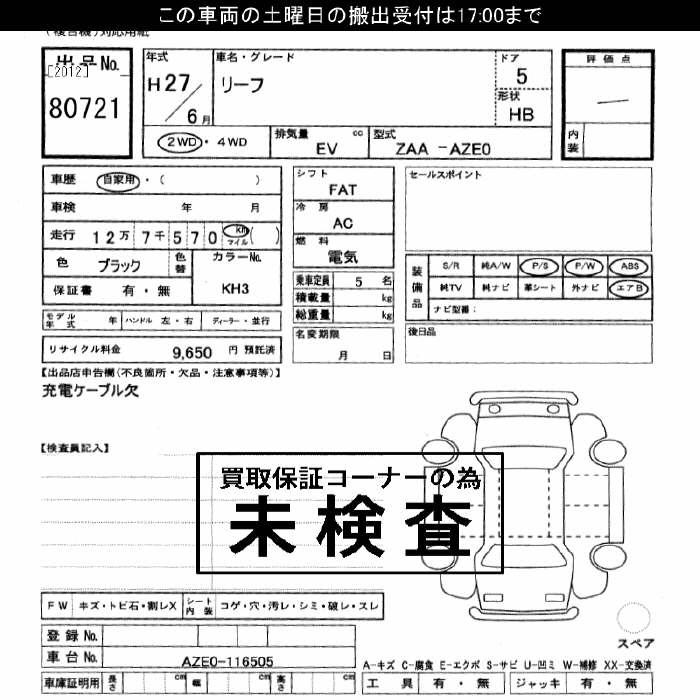 この車両の土曜日の搬出受付は17:00まで
(複合機)対応用紙
出品No.
[2012]
80721
年式
H27/6月
車名・グレード
リーフ
ドア
5
形状
HB
2WD・4WD
排気量 cc
EV
型式
ZAA -AZE0
評価点
—
内装
車歴 自家用・( )
車検 年 月
走行 12万7千570 km マイル ( )
色 ブラック
色替
カラーNo.
KH3
保証書 有・無
モデル年式 年 ハンドル 左・右 ディーラー・並行
リサイクル料金 9,650 円 預託済
シフト
FAT
冷房
AC
燃料
電気
乗車定員 5 名
積載量 kg
総重量 kg
名変期限
月 日
セールスポイント
装備品
S/R 純A/W P/S P/W ABS
純TV 純ナビ 革シート 外ナビ エアB
ナビ型番:
後日品
【出品店申告欄(不良箇所・欠品・注意事項等)】
充電ケーブル欠
【検査員記入】
買取保証コーナーの為
未検査
FW キズ・トビ石・割レX シート内装 コゲ・穴・汚レ・シミ・破レ・スレ
登録No.
車台No. AZE0-116505
車庫証明用 長さ cm 幅 cm 高さ cm
スペア
A-キズ C-腐食 E-エクボ S-サビ U-凹ミ W-補修 XX-交換済
工具 有・無 ジャッキ 有・無